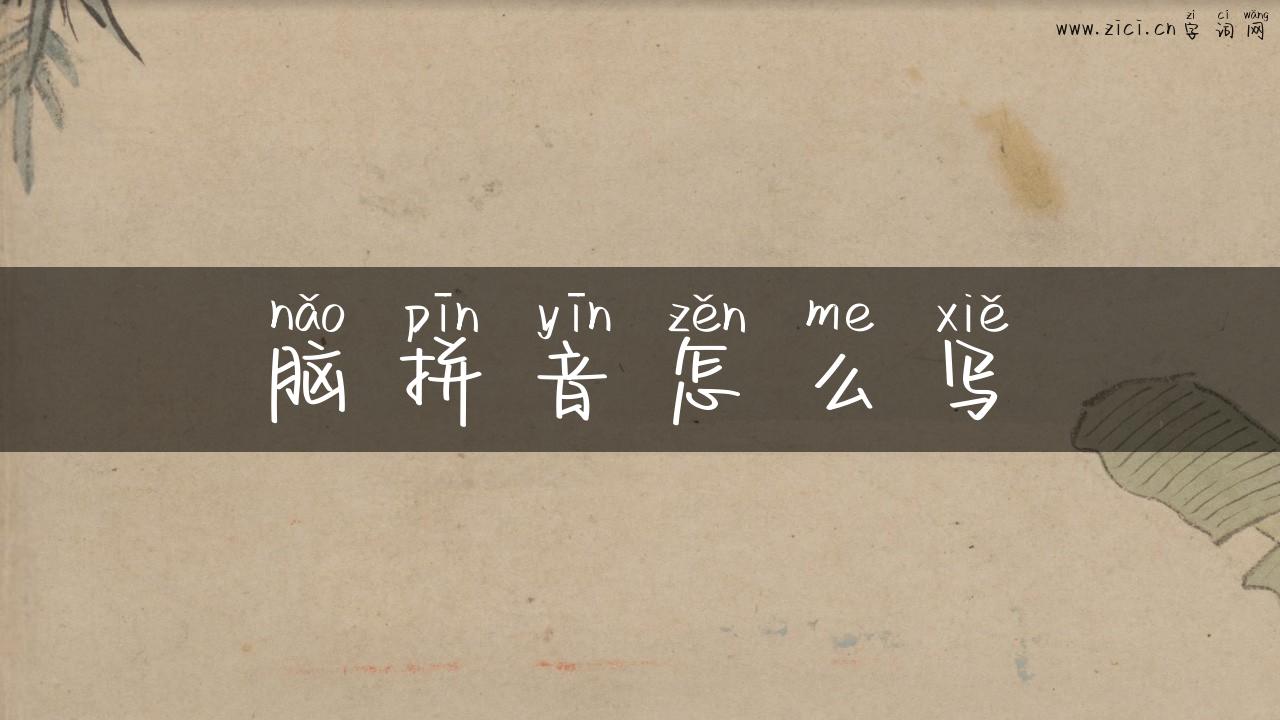 zì cí wǎng
www.zici.cn 字词网
nǎo pīn yīn zěn me xiě
脑拼音怎么写